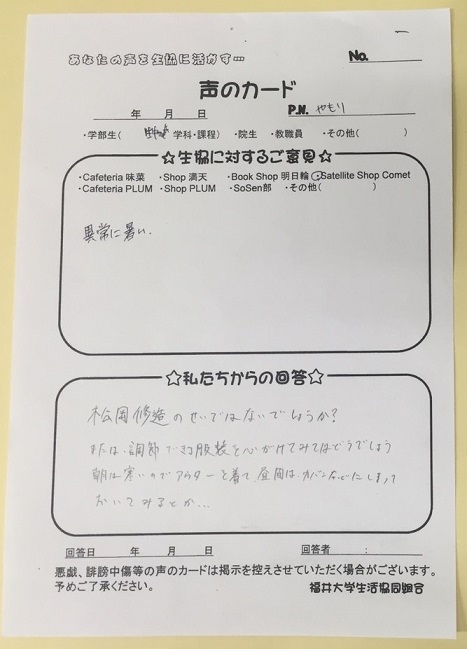 あなたの声を生協に活かす…
No.
声のカード
年 月 日 P.N. やもり
・学部生( 学科・課程) ・院生 ・教職員 ・その他( )
☆生協に対するご意見☆
・Cafeteria 味菜 ・Shop 満天 ・Book Shop 明日輪 ・Satellite Shop Comet
・Cafeteria PLUM ・Shop PLUM ・SoSen部 ・その他( )
異常に暑い.
☆私たちからの回答☆
松岡修造のせいではないでしょうか?
または、調節できる服装を心がけてみてはどうでしょう
朝は寒いのでアウターを着て、昼間は、カバンなどにしまって
おいてみるとか…
回答日 年 月 日 回答者 :
悪戯、誹謗中傷等の声のカードは掲示を控えさせていただく場合がございます。
予めご了承ください。 福井大学生活協同組合